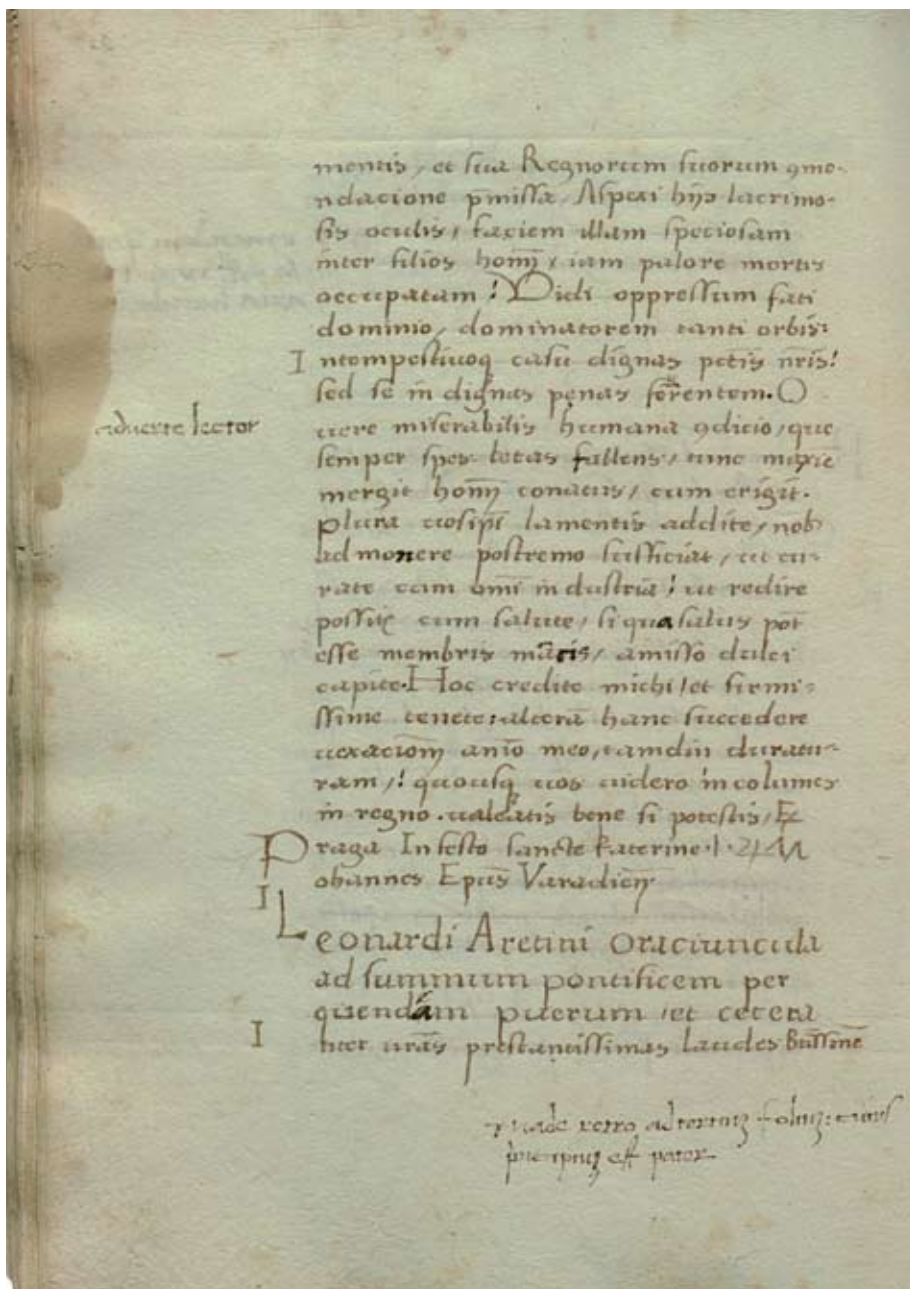 mentis, et sua Regnorum suorum ꝯme-
ndacione p̄missa, Aspexi hijs lacrimo-
sis oculis, faciem illam speciosam
inter filios hom̄, iam palore mortis
occupatam! Vidi oppressum fati
dominio, dominatorem tanti orbis:
Intempestiuoq casu dignas pctis nr̄is!
sed se in dignas penas ferentem. O
aduerte lector
uere miserabilis humana ꝯdicio, que
semper spes letas fallens, tunc maxie
mergit hom̄ conatus, cum erigit.
plura uosip̄i lamentis addite, nob
ad monere postremo sufficiat, ut cu-
rate cum om̄i in dustria! ut redire
possitꝭ cum salute, si qua salus pōt
esse membris, amisso dulci
capite. Hoc credite michi, et firmi-
ssime tenete: alterā hanc succedere
uexaciom̄ anīo meo, tamdiu duratu-
ram,! quousq uos uidero incolumes
in regno. ualeatis bene si potestis, Ex
Praga In festo sancte katerine
Iohannes Epus̄ Varadien̄
Leonardi Aretini oraciuncula
ad summum pontificem per
quendam puerum, et cetera
Inter ur̄as prestantissimas laudes
vade retro ad tertiuꝫ foliuꝫ: cuius
principiuꝫ est pater